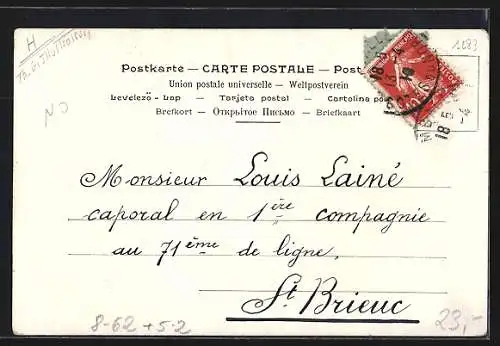 H
1183
Postkarte — CARTE POSTALE — Post
Union postale universelle — Weltpostverein
Levelező - Lap — Tarjeta postal — Cartolina po
Brefkort — Открытое Письмо — Briefkaart
NO
Monsieur Louis Lainé
caporal en 1ère compagnie
au 71ème de ligne,
St. Brieuc
8-62 + 5-2
23,-